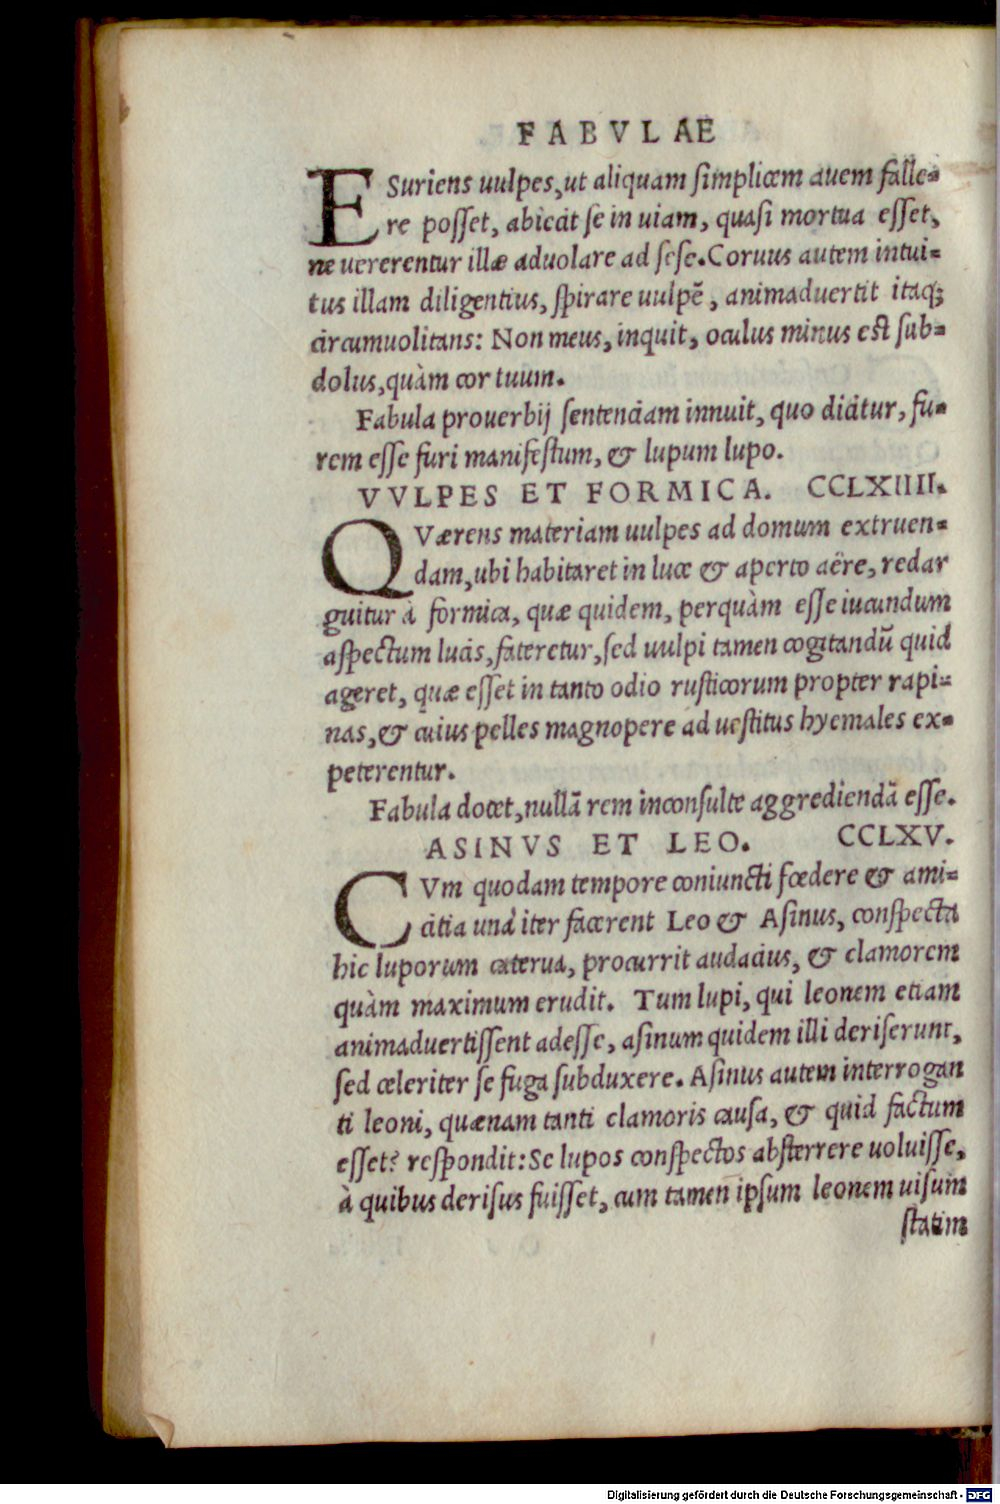 FABVLAE
ESuriens uulpes, ut aliquam simplicem auem falle=
re posset, abiecit se in uiam, quasi mortua esset,
ne uererentur illæ aduolare ad sese. Coruus autem intui=
tus illam diligentius, spirare uulpē, animaduertit itaq;
circumuolitans: Non meus, inquit, oculus minus est sub=
dolus, quàm cor tuum.
Fabula prouerbij sentenciam innuit, quo dicitur, fu=
rem esse furi manifestum, & lupum lupo.
VVLPES ET FORMICA. CCLXIIII.
QVærens materiam uulpes ad domum extruen=
dam, ubi habitaret in luce & aperto aëre, redar
guitur à formica, quæ quidem, perquàm esse iucundum
aspectum lucis, fateretur, sed uulpi tamen cogitandū quid
ageret, quæ esset in tanto odio rusticorum propter rapi=
nas, & cuius pelles magnopere ad uestitus hyemales ex=
peterentur.
Fabula docet, nullā rem inconsulte aggrediendā esse.
ASINVS ET LEO. CCLXV.
CVm quodam tempore coniuncti fœdere & ami=
citia unà iter facerent Leo & Asinus, conspecta
hic luporum caterua, procurrit audacius, & clamorem
quàm maximum erudit. Tum lupi, qui leonem etiam
animaduertissent adesse, asinum quidem illi deriserunt,
sed celeriter se fuga subduxere. Asinus autem interrogan
ti leoni, quænam tanti clamoris causa, & quid factum
esset? respondit: Se lupos conspectos absterrere uoluisse,
à quibus derisus fuisset, cum tamen ipsum leonem uisum
statim
Digitalisierung gefördert durch die Deutsche Forschungsgemeinschaft - DFG